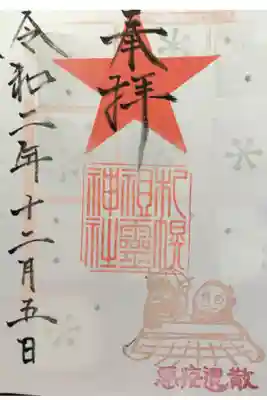 奉拝
札幌
祖霊
神社
悪疫退散
令和二年十二月五日